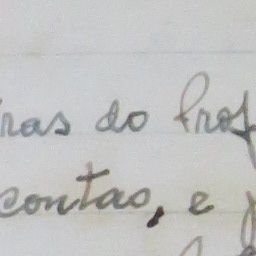 ras do Prof
contas, e